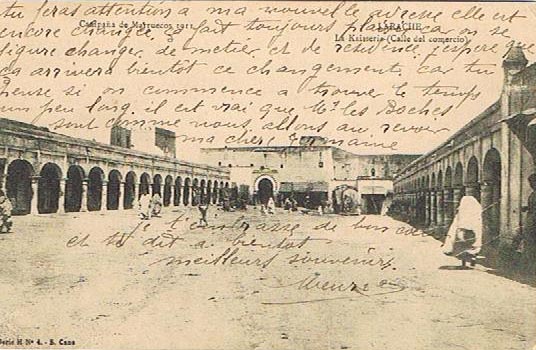 tu feras attention a ma nouvelle adresse elle est
encore changée il faut toujours que on se
Campaña de Marruecos 1911
LARACHE
La Kaisseria (Calle del comercio)
figure changer de metier et de residence j'espere que
ça arrivera bientot ce changement, car tu
pense si on commence a trouver le temps
un peu long, il est vrai que Mrs les Boches
sont comme nous allons au revoir
ma cher Germaine
je t'embrasse de bon cœur
et te dit a bientot
meilleurs souvenirs
Serie H Nº 4. - E. Cana